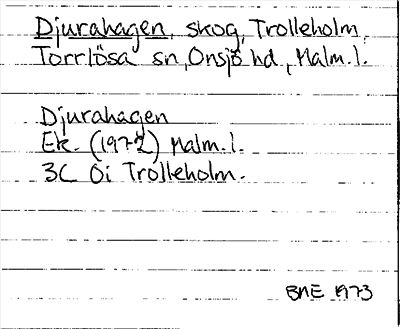 Djurahagen, skog, Trolleholm,
Torrlösa sn, Onsjö hd, Malm.l.
Djurahagen
Ek. (1972) Malm.l.
3C 0i Trolleholm.
BNE 1973